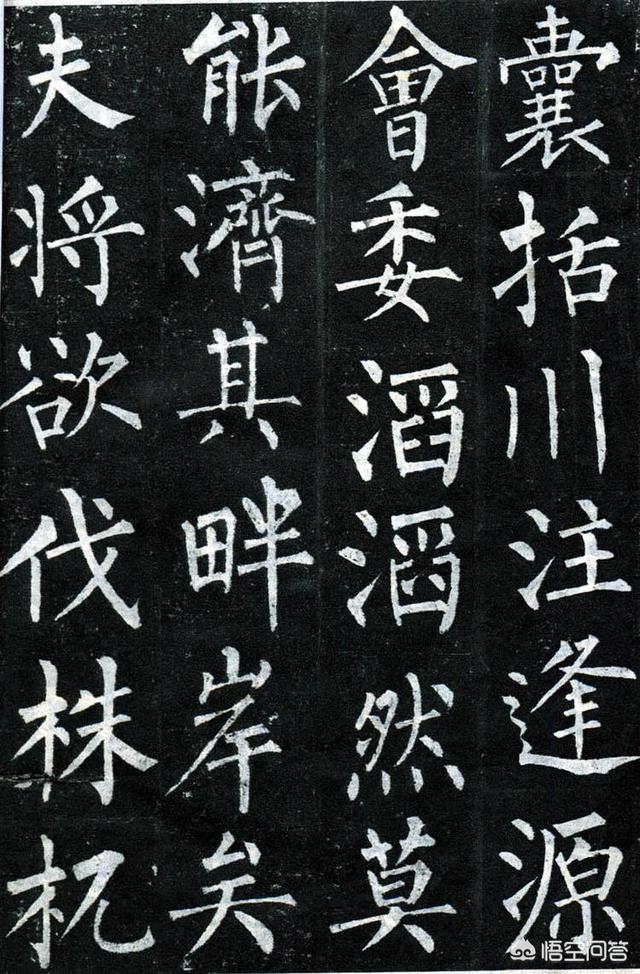 囊括川注逢源
會委滔滔然莫
能濟其畔岸矣
夫将欲伐株杌
悟空问答